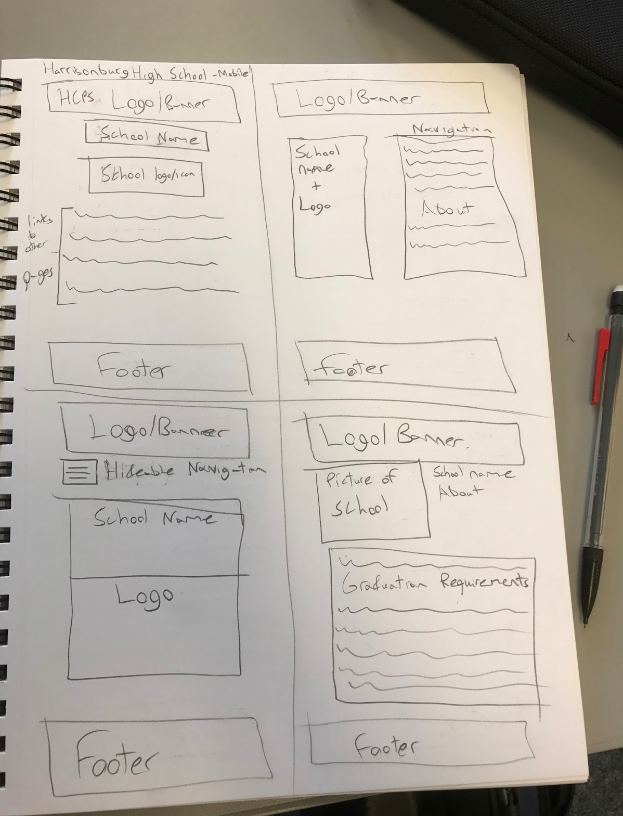 Harrisonburg High School - Mobile
HCPS Logo/Banner
School Name
School logo/icon
links
to
other
pages
Footer
Logo/Banner
School
name
+
Logo
Navigation
About
footer
Logo/Banner
Hideable Navigation
School Name
Logo
Footer
Logo/Banner
Picture of
School
School name
About
Graduation Requirements
Footer